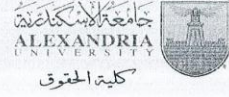 جامعة الإسكندرية
ALEXANDRIA
UNIVERSITY
كلية الحقوق